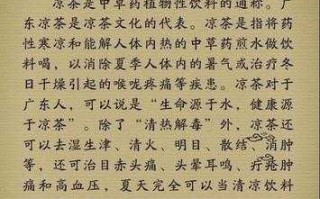 凉茶是中草药植物性饮料的通称。广
东凉茶是凉茶文化的代表。凉茶是指将药
性寒凉和能解人体内热的中草药煎水做饮
料喝，以消除夏季人体内的暑气或治疗冬
日干燥引起的喉咙疼痛等疾患。凉茶对于
广东人，可以说是“生命源于水，健康源
于凉茶”。除了“清热解毒”外，凉茶还
可以去湿生津、清火、明目、散结、消肿
等，还可治目赤头痛、头晕耳鸣、疔疮肿
痛和高血压，夏天完全可以当清凉饮料